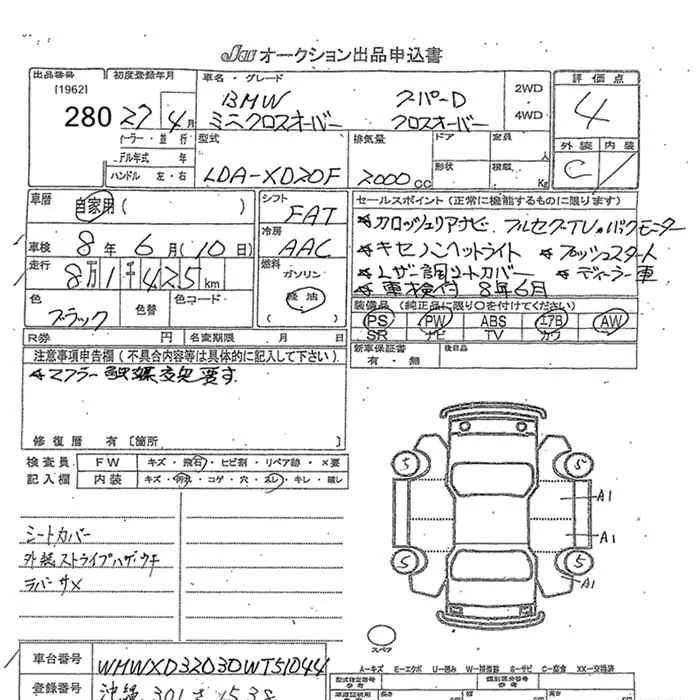 JU オークション出品申込書
出品番号 初度登録年月 車名・グレード 2WD・4WD 評価点
[1962]
280 27 4月 BMW クーパーD 4
ミニクロスオーバー クロスオーバー
ディーラー・並行 型式 排気量 ドア 定員 人 外装 内装
モデル年式 年 形状 積載 Kg C
ハンドル 左・右 LDA-XD20F 2000cc
車歴 自家用( ) シフト FAT セールスポイント(正常に機能するものに限ります)
★カロッツェリアナビ フルセグTV バックモニター
車検 8年6月(10日) 冷房 AAC ★キセノンヘッドライト ★プッシュスタート
走行 8万1千425km 燃料 ガソリン 軽油 ( ) ★レザー調シートカバー ★ディーラー車
★車検付 8年6月
色 ブラック 色替 色コード 装備品(純正品に限り○を付けてください)
PS PW ABS エアB AW
SR ナビ TV カワ
R券 円 名変期限 月 日 新車保証書 有・無 後日品
注意事項申告欄(不具合内容等は具体的に記入して下さい).
★マフラー触媒交換要す.
修復歴 有〔箇所 〕
検査員 FW キズ・飛石・ヒビ割・リペア跡・×要
記入欄 内装 キズ・汚れ・コゲ・穴・スレ・キレ・破レ
シートカバー
外装ストライプハゲ・ウキ
ラバーサメ
5 5
A1
A1
5 5
A1
スペア
車台番号 WMWXD32030WT51044
A-キズ E-エクボ U-凹み W-補修跡 S-サビ C-腐食 XX-交換済
登録番号 沖縄 301 さ 1538
型式指定番号 参考 類別区分番号 参考
長さ cm 幅 cm 高さ cm